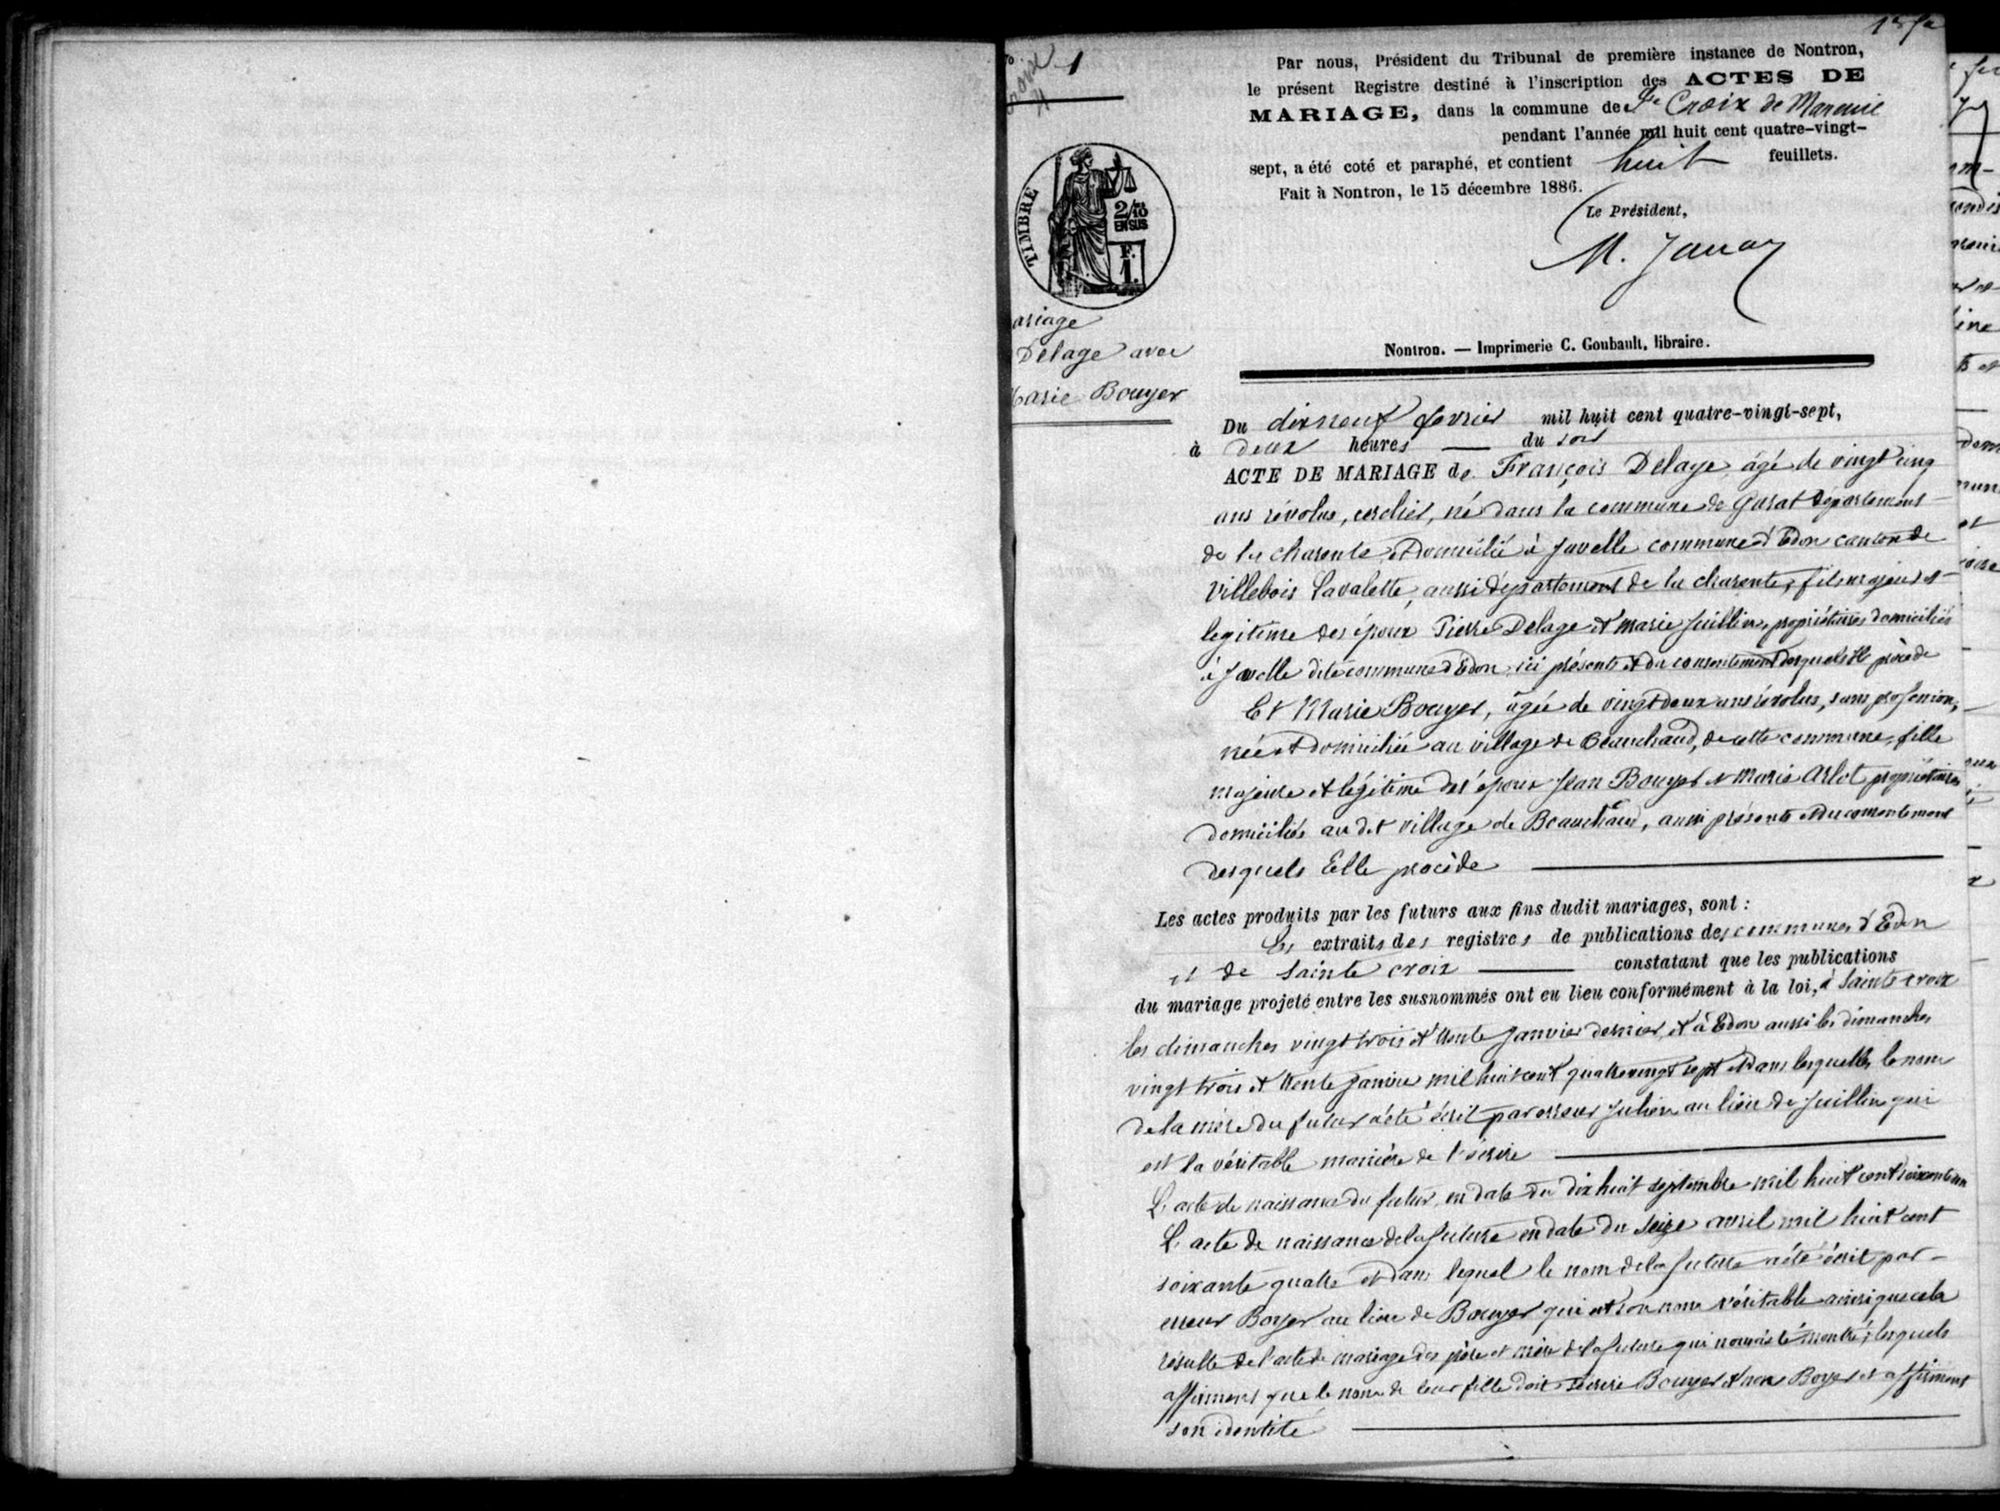 1
TIMBRE
2/10
EN SUS
F.
1.
ariage
Delage avec
Marie Bouyer
Par nous, Président du Tribunal de première instance de Nontron,
le présent Registre destiné à l'inscription des ACTES DE
MARIAGE, dans la commune de Ste Croix de Mareuil
pendant l'année mil huit cent quatre-vingt-
sept, a été coté et paraphé, et contient huit feuillets.
Fait à Nontron, le 15 décembre 1886.
Le Président,
Nontron. — Imprimerie C. Goubault, libraire.
Du dix neuf février mil huit cent quatre-vingt-sept,
à deux heures — du soir
ACTE DE MARIAGE de François Delage, âgé de vingt cinq
ans révolus, cerclier, né dans la commune de Garat département
de la charente, et domicilié à Javelle commune d'Edon canton de
Villebois Lavalette, aussi département de la charente, fils majeur et
legitime des époux Pierre Delage et marie Juillin, propriétaires domiciliés
à Javelle dite commune d'Edon, ici présents et du consentement desquels il procède
Et Marie Bouyer, âgée de vingt deux ans révolus, sans profession,
née et domiciliée au village de Beauchaud, de cette commune, fille
majeure et légitime des époux Jean Bouyer et Marie Arlot propriétaires
domiciliés au dit village de Beauchaud, aussi présents et du consentement
desquels Elle procède
Les actes produits par les futurs aux fins dudit mariages, sont :
Les extraits des registres de publications des communes d'Edon
et de Sainte croix — constatant que les publications
du mariage projeté entre les susnommés ont eu lieu conformément à la loi, à Sainte croix
les dimanches vingt trois et trente Janvier dernier, et à Edon aussi les dimanches
vingt trois et trente Janvier mil huit cent quatre vingt sept et dans lesquelles le nom
de la mère du futur a été écrit par erreur Julien au lieu de Juillin qui
est la véritable manière de l'écrire
L'acte de naissance du futur, en date du dix huit septembre mil huit cent soixante un
L'acte de naissance de la future en date du seize avril mil huit cent
soixante quatre et dans lequel le nom de la future a été écrit par-
erreur Boyer au lieu de Bouyer qui est son nom véritable ainsi que cela
résulte de l'acte de mariage des père et mère de la future qui nous a été montré, lesquels
affirment que le nom de leur fille doit s'écrire Bouyer et non Boyer et affirment
son identité